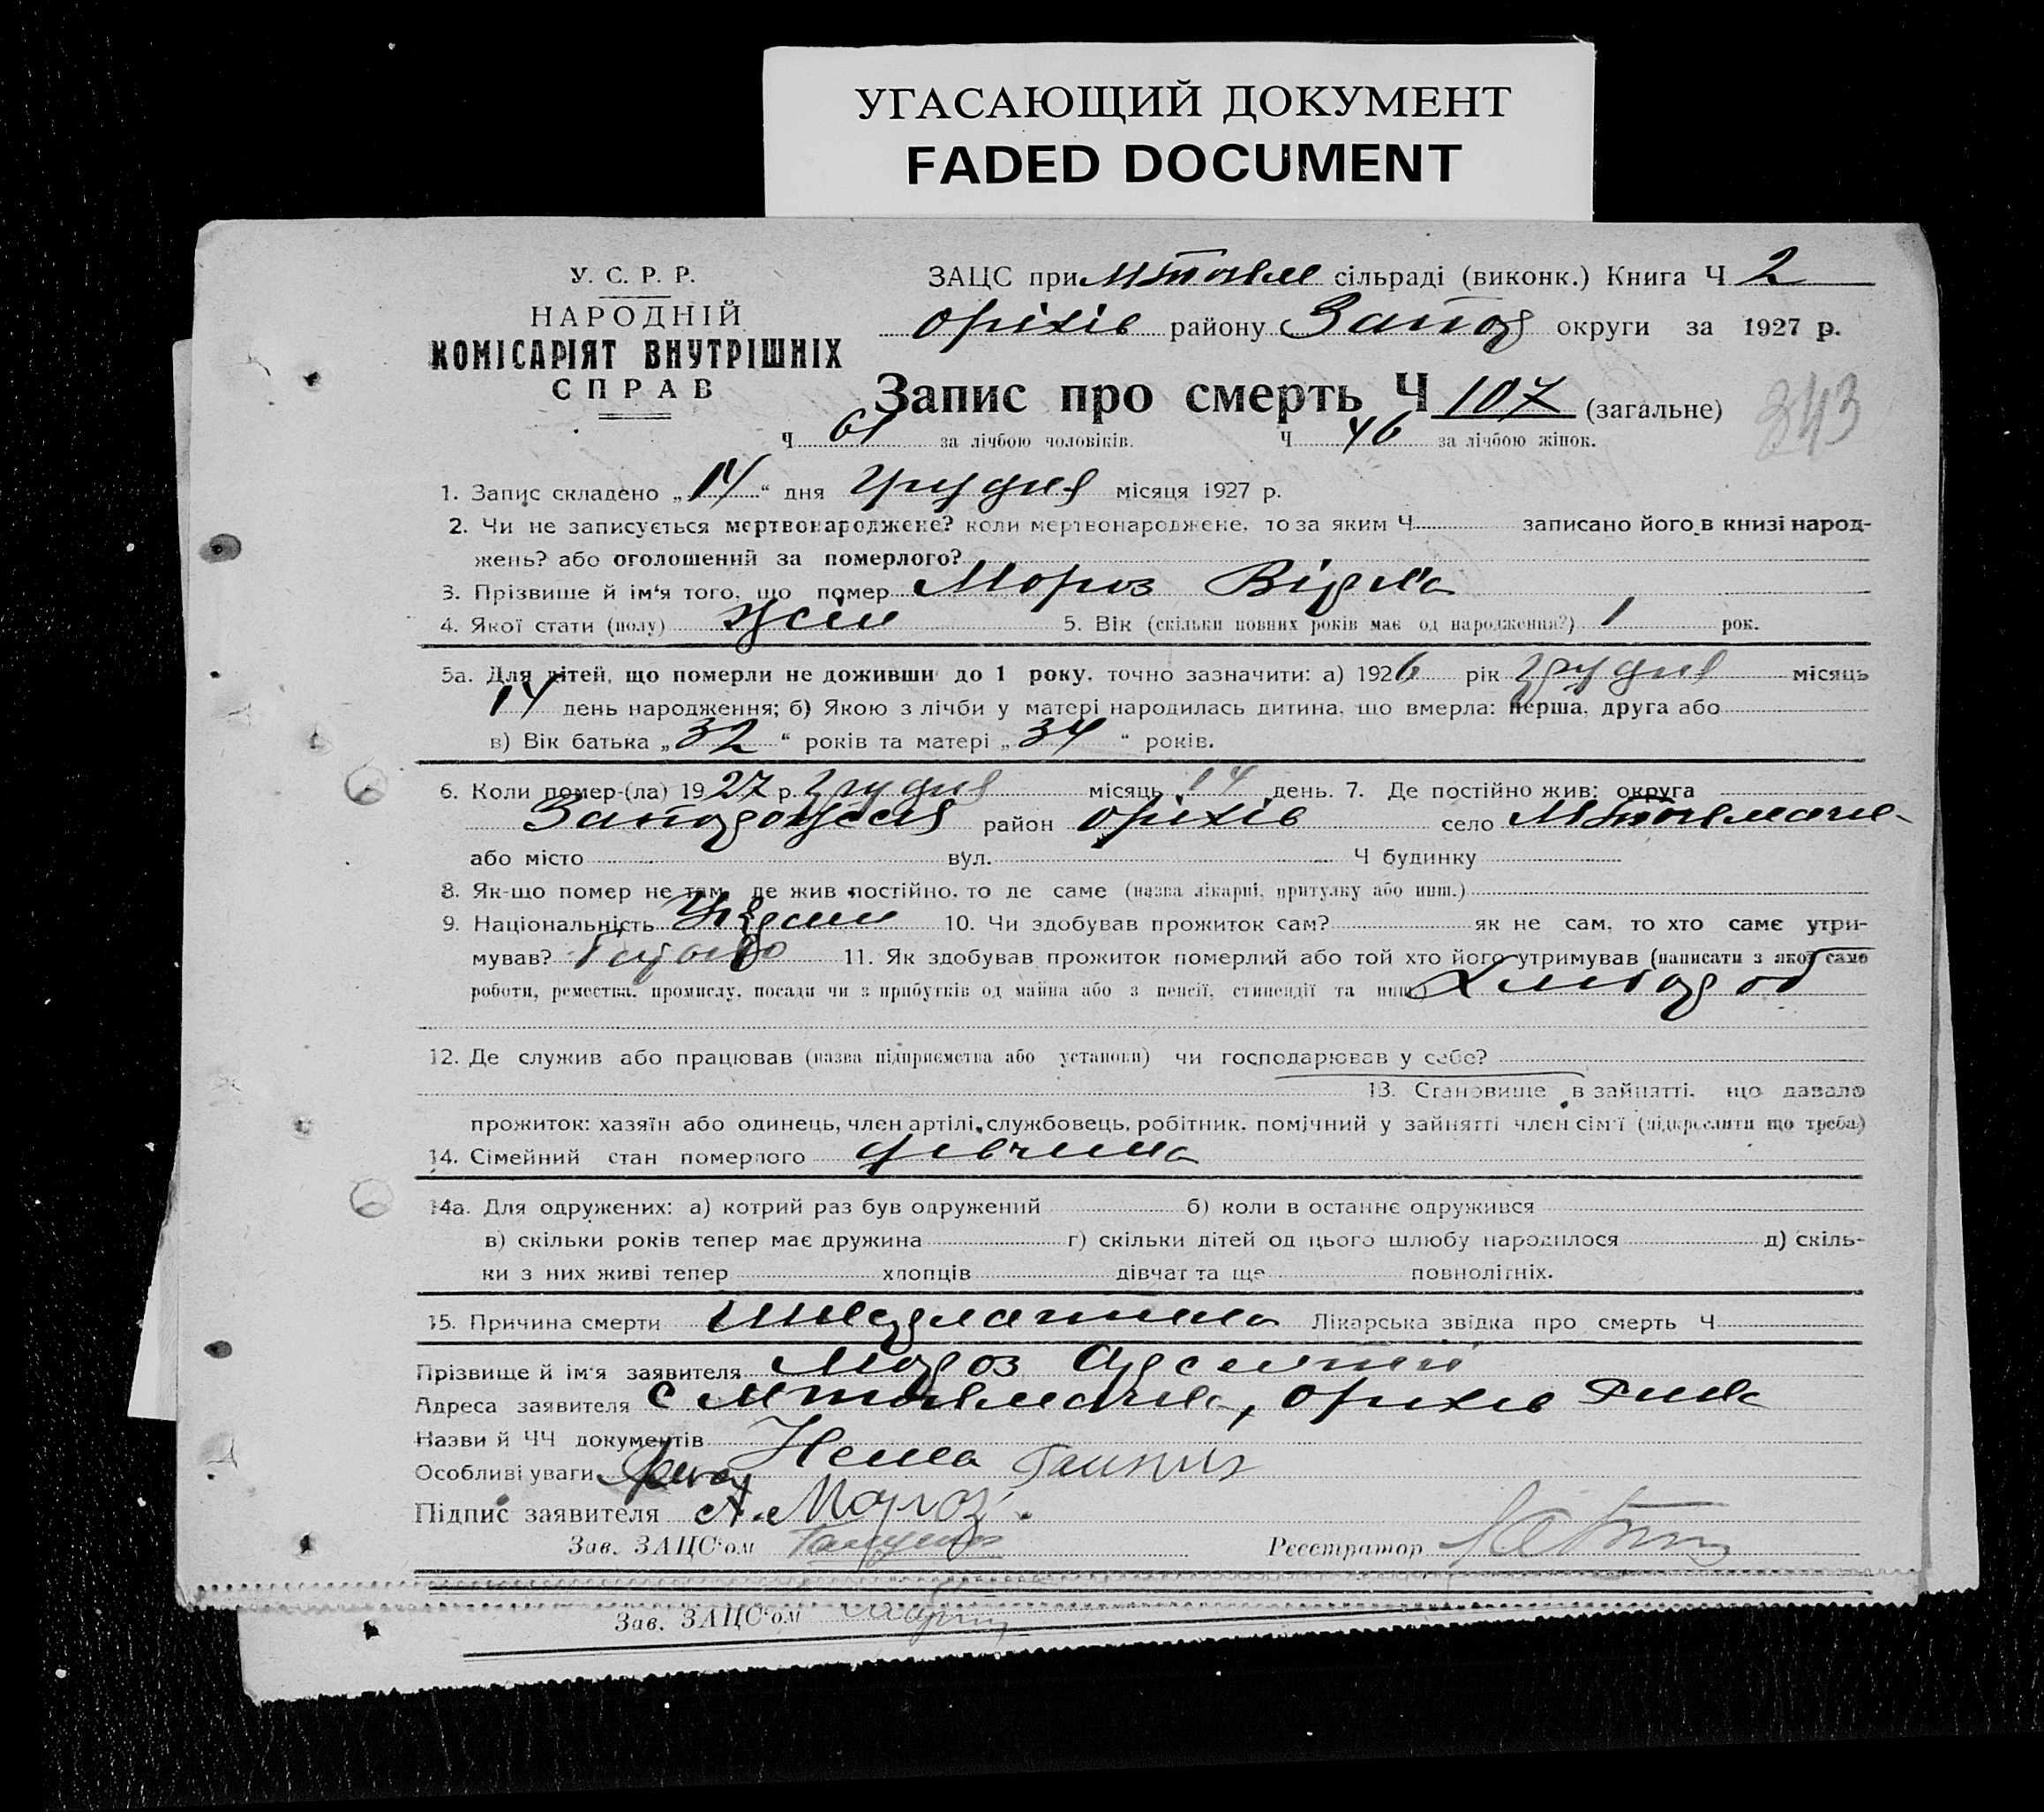 УГАСАЮЩИЙ ДОКУМЕНТ
FADED DOCUMENT
У. С. Р. Р.
НАРОДНІЙ
КОМІСАРІЯТ ВНУТРІШНІХ
СПРАВ
ЗАЦС при сільраді (виконк.) Книга Ч 2
Оріхів району Запор округи за 1927 р.
Запис про смерть Ч 107 (загальне)
343
Ч 61 за лічбою чоловіків. Ч 46 за лічбою жінок.
1. Запис складено „14“ дня грудня місяця 1927 р.
2. Чи не записується мертвонароджене? коли мертвонароджене, то за яким Ч записано його в книзі народ-
жень? або оголошений за померлого?
3. Прізвище й ім'я того, що помер Мороз
4. Якої стати (полу) жін 5. Вік (скільки повних років має од народження?) 1 рок.
5а. Для дітей, що померли не доживши до 1 року, точно зазначити: а) 1926 рік грудня місяць
14 день народження; б) Якою з лічби у матері народилась дитина, що вмерла: перша, друга або
в) Вік батька „32“ років та матері „34“ років.
6. Коли помер-(ла) 1927 р. грудня місяць 14 день. 7. Де постійно жив: округа
район Оріхів село
або місто вул. Ч будинку
8. Як-що помер не там, де жив постійно, то де саме (назва лікарні, притулку або инш.)
9. Національність 10. Чи здобував прожиток сам? як не сам, то хто саме утри-
мував? 11. Як здобував прожиток померлий або той хто його утримував (написати з якої саме
роботи, ремества, промислу, посади чи з прибутків од майна або з пенсії, стипендії та инш.) Хлібороб
12. Де служив або працював (назва підприємства або установи) чи господарював у себе?
13. Становище в зайнятті, що давало
прожиток: хазяїн або одинець, член артілі, службовець, робітник, помічний у зайнятті член сім'ї (підкреслити що треба)
14. Сімейний стан померлого дівчина
14а. Для одружених: а) котрий раз був одружений б) коли в останнє одружився
в) скільки років тепер має дружина г) скільки дітей од цього шлюбу народилося д) скіль-
ки з них живі тепер хлопців дівчат та ще повнолітніх.
15. Причина смерти Лікарська звідка про смерть Ч
Прізвище й ім'я заявителя Мороз
Адреса заявителя с
Назви й ЧЧ документів Нема
Особливі уваги
Підпис заявителя А. Мороз.
Зав. ЗАЦС'ом Реєстратор
Зав. ЗАЦС'ом